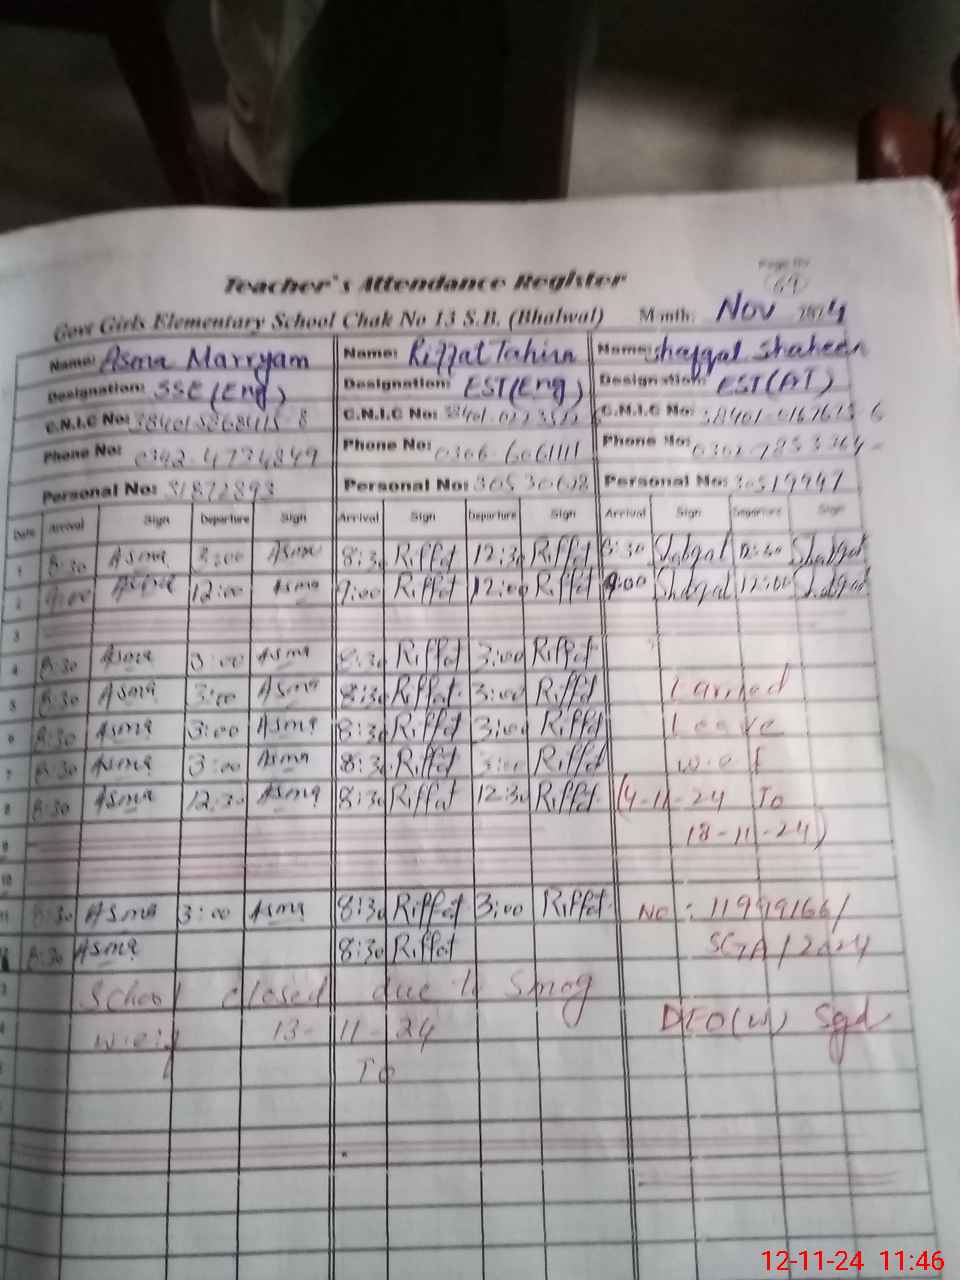 Page No
69
Teacher's Attendance Register
Govt Girls Elementary School Chak No 13 S.B. (Bhalwal) Month: Nov 2024
Name: Asma Marryam Name: Riffat Tahira Name: Shafqat Shaheen
Designation: SSE (Eng) Designation: EST (Eng) Designation: EST (AT)
C.N.I.C No: C.N.I.C No: C.N.I.C No:
Phone No: 0342-4734849 Phone No: 0306-6061111 Phone No:
Personal No: 31872893 Personal No: 30530628 Personal No: 30519947
Date Arrival Sign Departure Sign Arrival Sign Departure Sign Arrival Sign Departure Sign
1 8:30 Asma 3:00 Asma 8:30 Riffat 12:30 Riffat 8:30 Shafqat 12:30 Shafqat
2 9:00 Asma 12:00 Asma 9:00 Riffat 12:00 Riffat 9:00 Shafqat 12:00 Shafqat
3
4 8:30 Asma 3:00 Asma 8:30 Riffat 3:00 Riffat
5 8:30 Asma 3:00 Asma 8:30 Riffat 3:00 Riffat Earned
6 8:30 Asma 3:00 Asma 8:30 Riffat 3:00 Riffat Leave
7 8:30 Asma 3:00 Asma 8:30 Riffat 3:00 Riffat w.e.f
8 8:30 Asma 12:30 Asma 8:30 Riffat 12:30 Riffat (4-11-24 To
9 18-11-24)
10
11 8:30 Asma 3:00 Asma 8:30 Riffat 3:00 Riffat No: 11949166/
8:30 Asma 8:30 Riffat SGA/2024
School closed due to Smog
w.e.f 13-11-24 DEO(W) Sgd
To
12-11-24 11:46